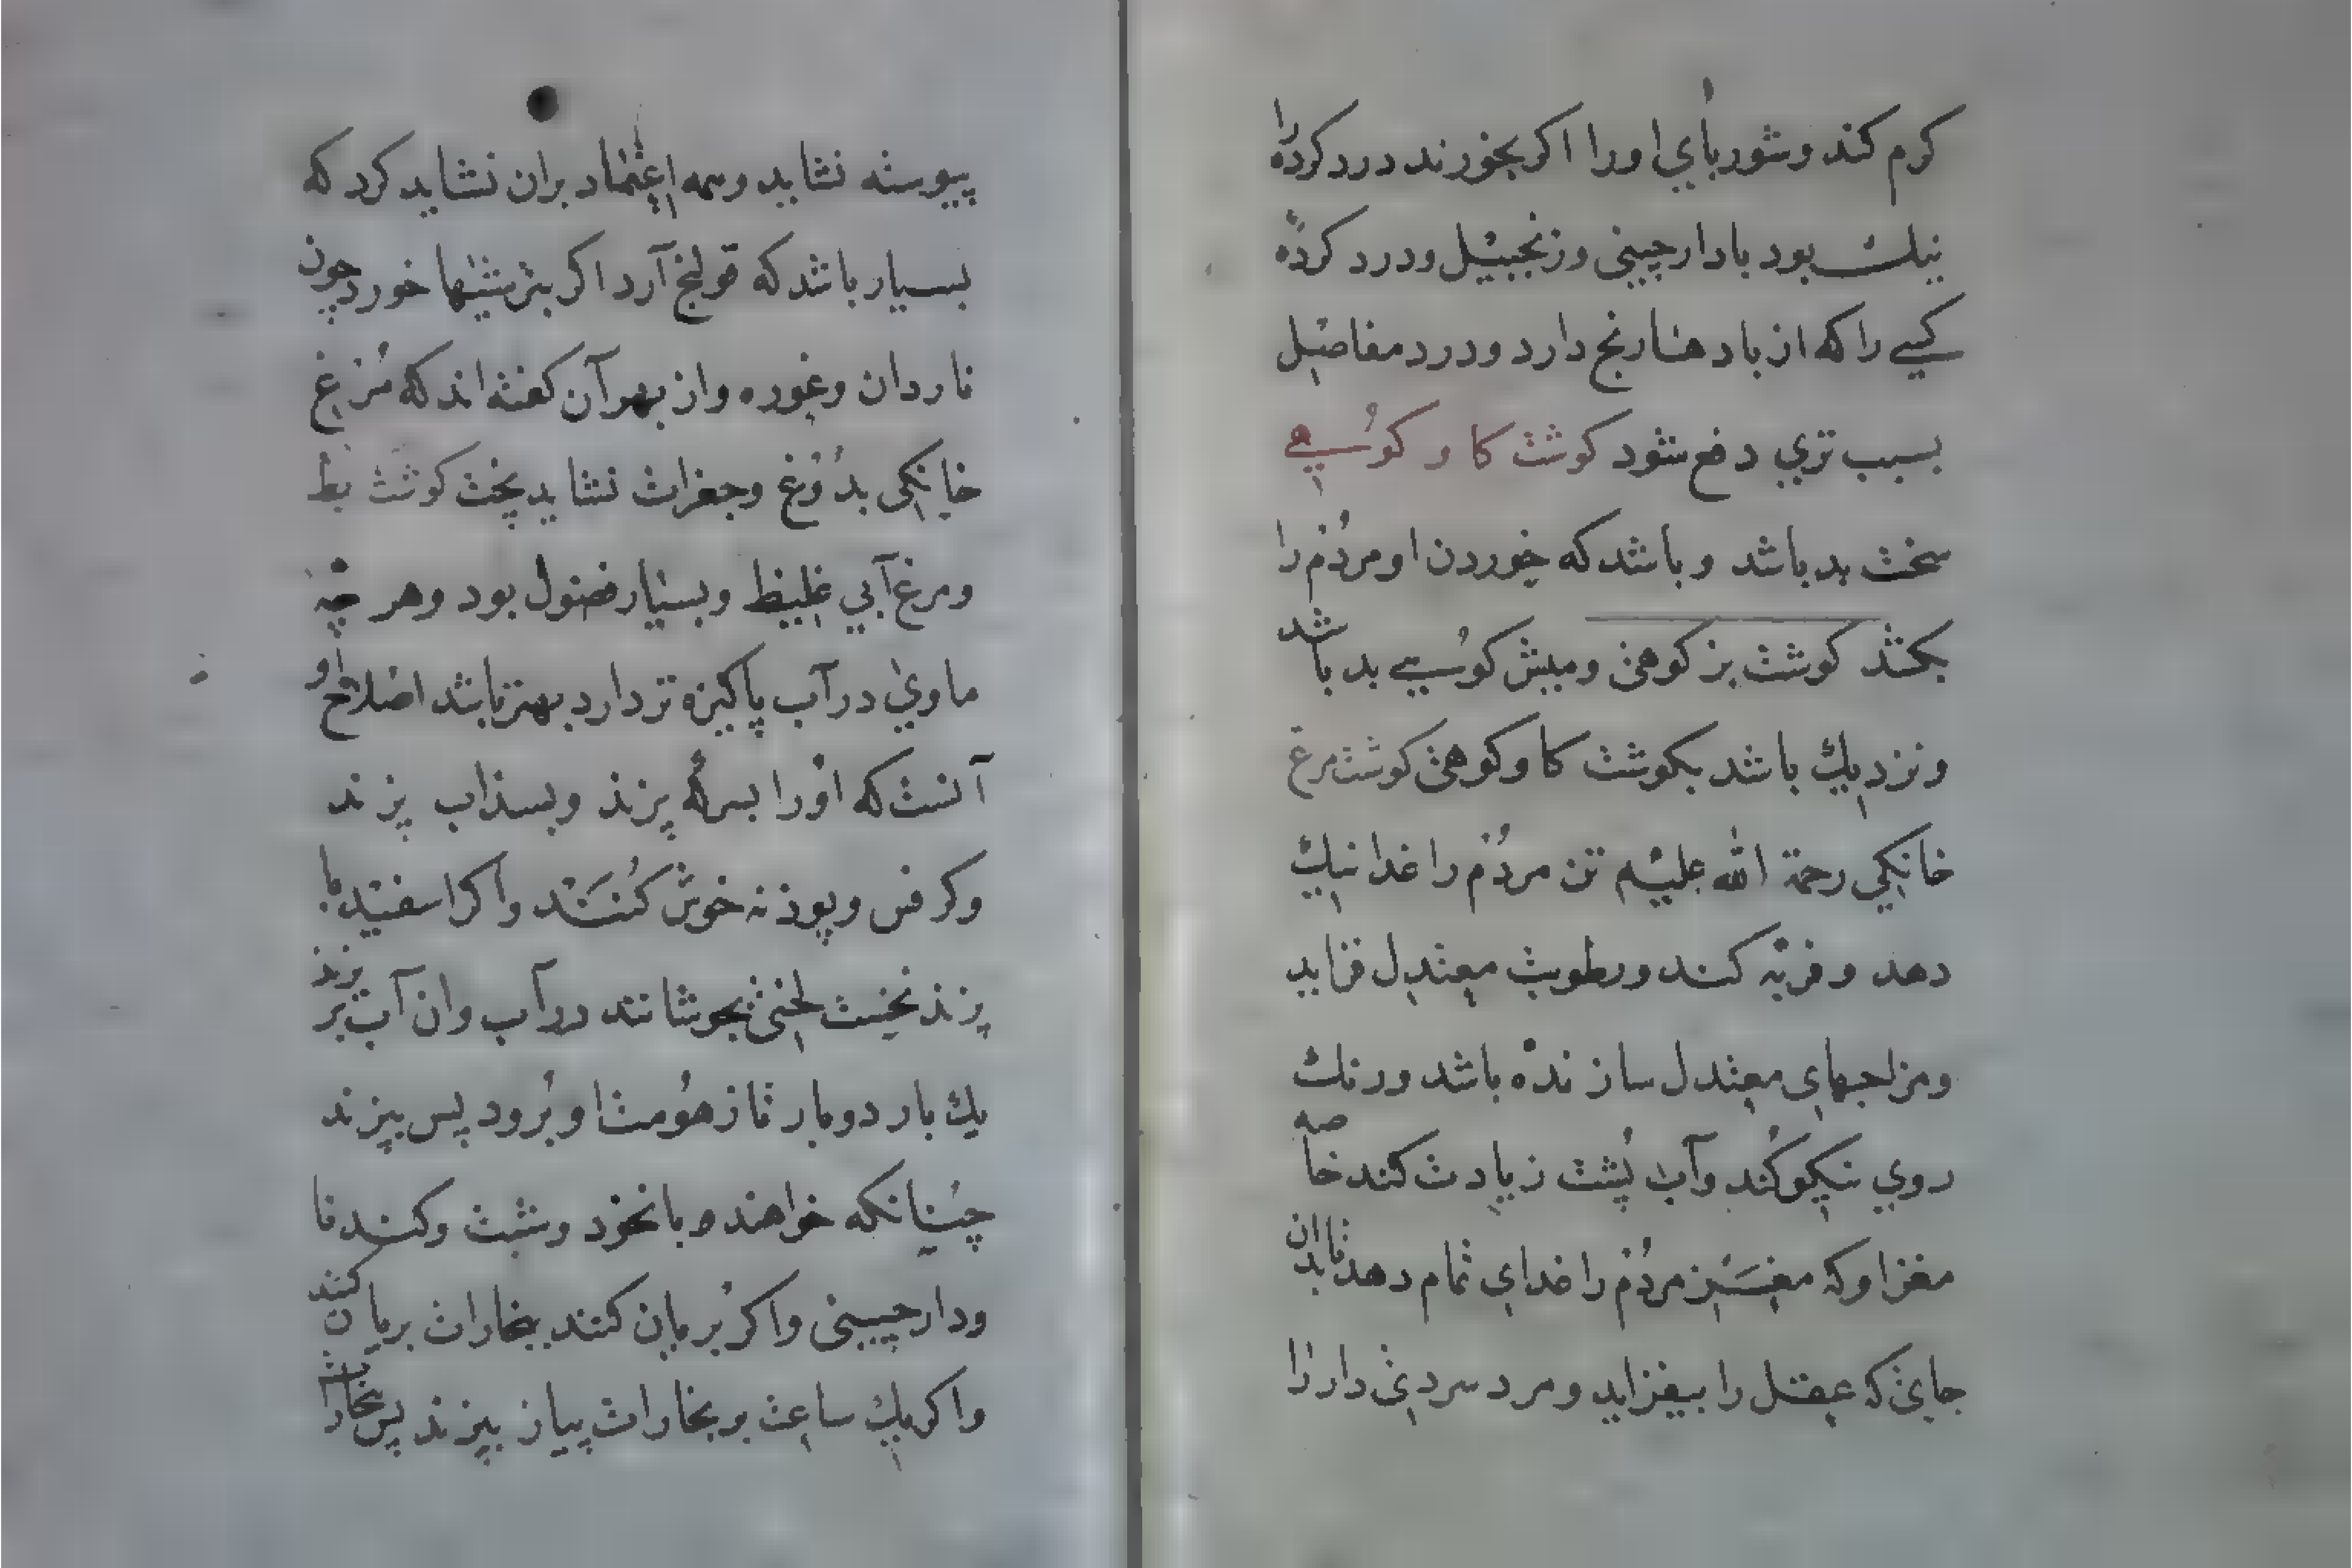 کرم کند وشوربای اورا اکر بخورند درد کرده را
نیک بود بادارچینی وزنجبیل ودرد کرده
کسی راکه از باد هنا رنج دارد ودرد مفاصل
بسبب تری دفع شود کوشت کاو کوسهی
سخت بد باشد وباشدکه خوردن او مردم را
بکشذ کوشت بز کوهی ومیش کوسهی بد باشد
ونزدیک باشد بکوشت کاوکوهی کوشت مرغ
خانکی رحمة الله علیهم تن مردم را غدا نیک
دهد وفربه کند ورطوبت معتدل فزاید
ومزاجهای معتدل سازنده باشد ورنک
روی نیکوکند وآب پشت زیادت کند خاصه
مغز اوکه مغز سر مردم را غدای تمام دهد تابدان
جایی که عقل را بیفزاید ومرد سردی دار را
پیوسته نشاید وهمه اعتماد بران نشاید کرد که
بسیار باشدکه قولنج آرد اکر بترشیها خورد چون
ناردان وغوره واز بهر آن کفته اند که مرغ
خانکی بدوغ وجغرات نشاید پخت کوشت بط
ومرغ آبی غلیظ وبسیار فضول بود وهر چه
ماوی در آب پاکیزه تر دارد بهتر باشد اصلاح او
آنست که اورا بسرکه پزند وبسذاب پزند
وکرفس وپوذنه خوش کنند واکر اسفیدبا
پزند نخست لختی بجوشانند درآب وان آب بریزند
یک بار دوبار تا زهومت او برود پس بپزند
چنانکه خواهند وبانخود وشبت وکندنا
ودارچینی واکر بریان کنند ببخارات بریان کنند
واکر یک ساعت بر بخارات پیاز بپزند پس بخارات